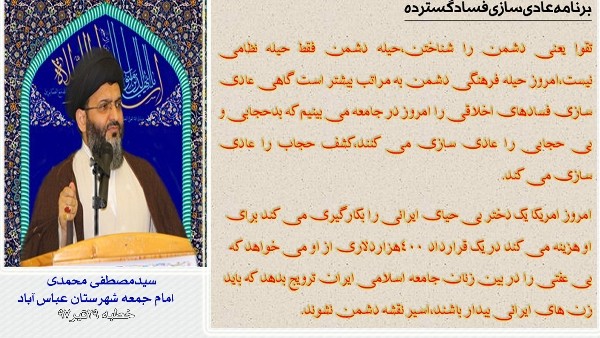 برنامه‌عادی‌سازی‌فسادگسترده
تقوا یعنی دشمن را شناختن،حیله دشمن فقط حیله نظامی
نیست،امروز حیله فرهنگی دشمن به مراتب بیشتر است گاهی عادی
سازی فسادهای اخلاقی را امروز در جامعه می بینیم که بدحجابی و
بی حجابی را عادی سازی می کنند،کشف حجاب را عادی
سازی می کند.
امروز امریکا یک دختر بی حیای ایرانی را بکارگیری می کند برای
او هزینه می کند در یک قرارداد ۴۰۰هزاردلاری از او می خواهد که
بی عفتی را در بین زنان جامعه اسلامی ایران ترویج بدهد که باید
زن های ایرانی بیدار باشند،اسیر نقشه دشمن نشوند.
سیدمصطفی محمدی
امام جمعه شهرستان عباس آباد
خطبه ۲۹تیر۹۷